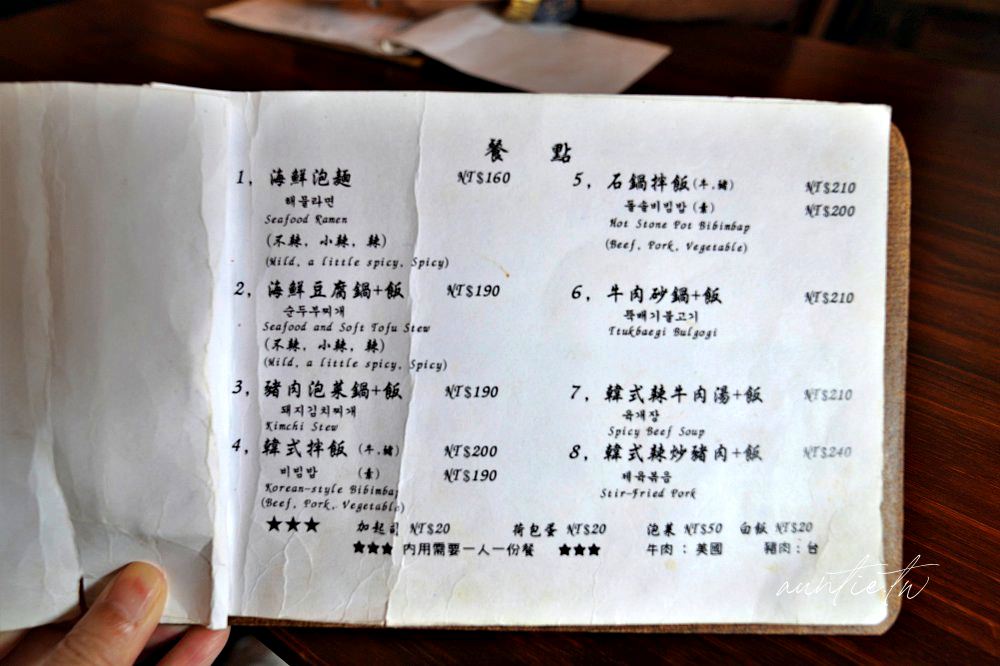 餐 點
1, 海鮮泡麵 NT$160
해물라면
Seafood Ramen
(不辣, 小辣, 辣)
(Mild, a little spicy, Spicy)
2, 海鮮豆腐鍋+飯 NT$190
순두부찌개
Seafood and Soft Tofu Stew
(不辣, 小辣, 辣)
(Mild, a little spicy, Spicy)
3, 豬肉泡菜鍋+飯 NT$190
돼지김치찌개
Kimchi Stew
4, 韓式拌飯 (牛,豬) NT$200
비빔밥 (素) NT$190
Korean-style Bibimbap
(Beef, Pork, Vegetable)
5, 石鍋拌飯(牛,豬) NT$210
돌솥비빔밥 (素) NT$200
Hot Stone Pot Bibimbap
(Beef, Pork, Vegetable)
6, 牛肉砂鍋+飯 NT$210
뚝배기불고기
Ttukbaegi Bulgogi
7, 韓式辣牛肉湯+飯 NT$210
육개장
Spicy Beef Soup
8, 韓式辣炒豬肉+飯 NT$240
제육볶음
Stir-Fried Pork
★★★ 加起司 NT$20 荷包蛋 NT$20 泡菜 NT$50 白飯 NT$20
★★★ 內用需要一人一份餐 ★★★ 牛肉：美國 豬肉：台
auntie.tw